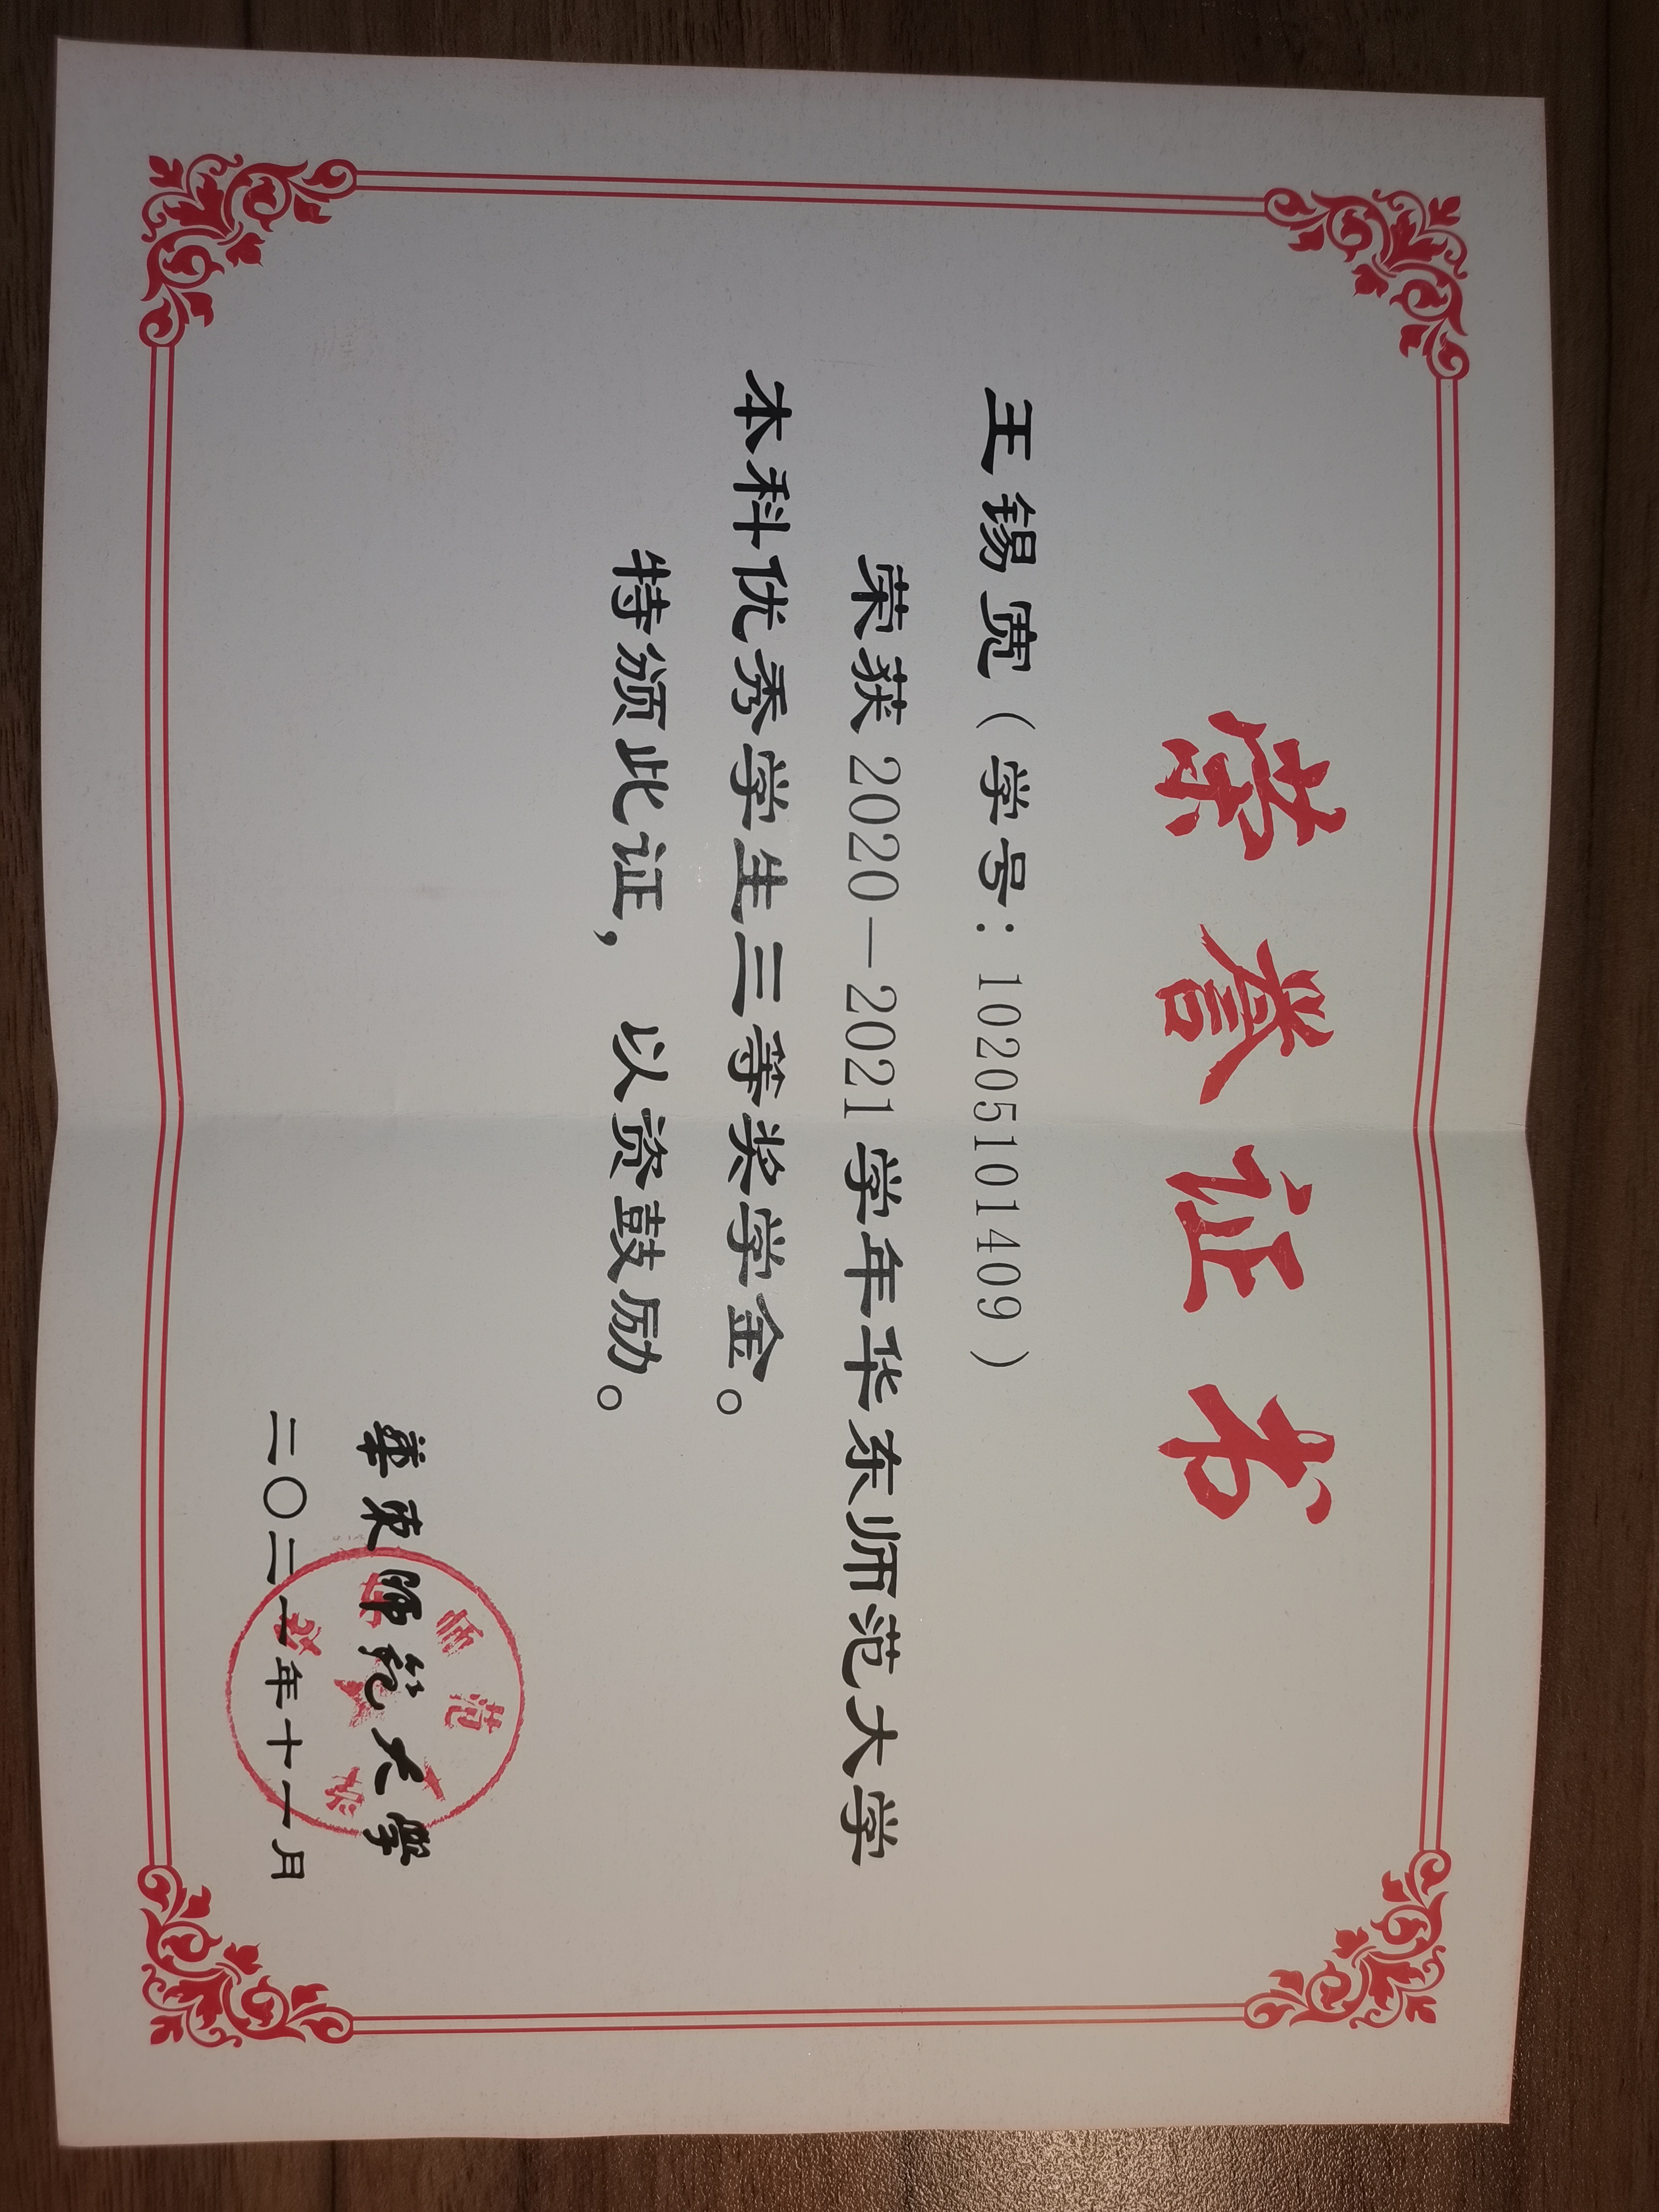 荣誉证书
王锡宽（学号：10205101409）
荣获2020—2021学年华东师范大学
本科优秀学生三等奖学金。
特颁此证，以资鼓励。
華東師範大學
二〇二一年十一月
师范大